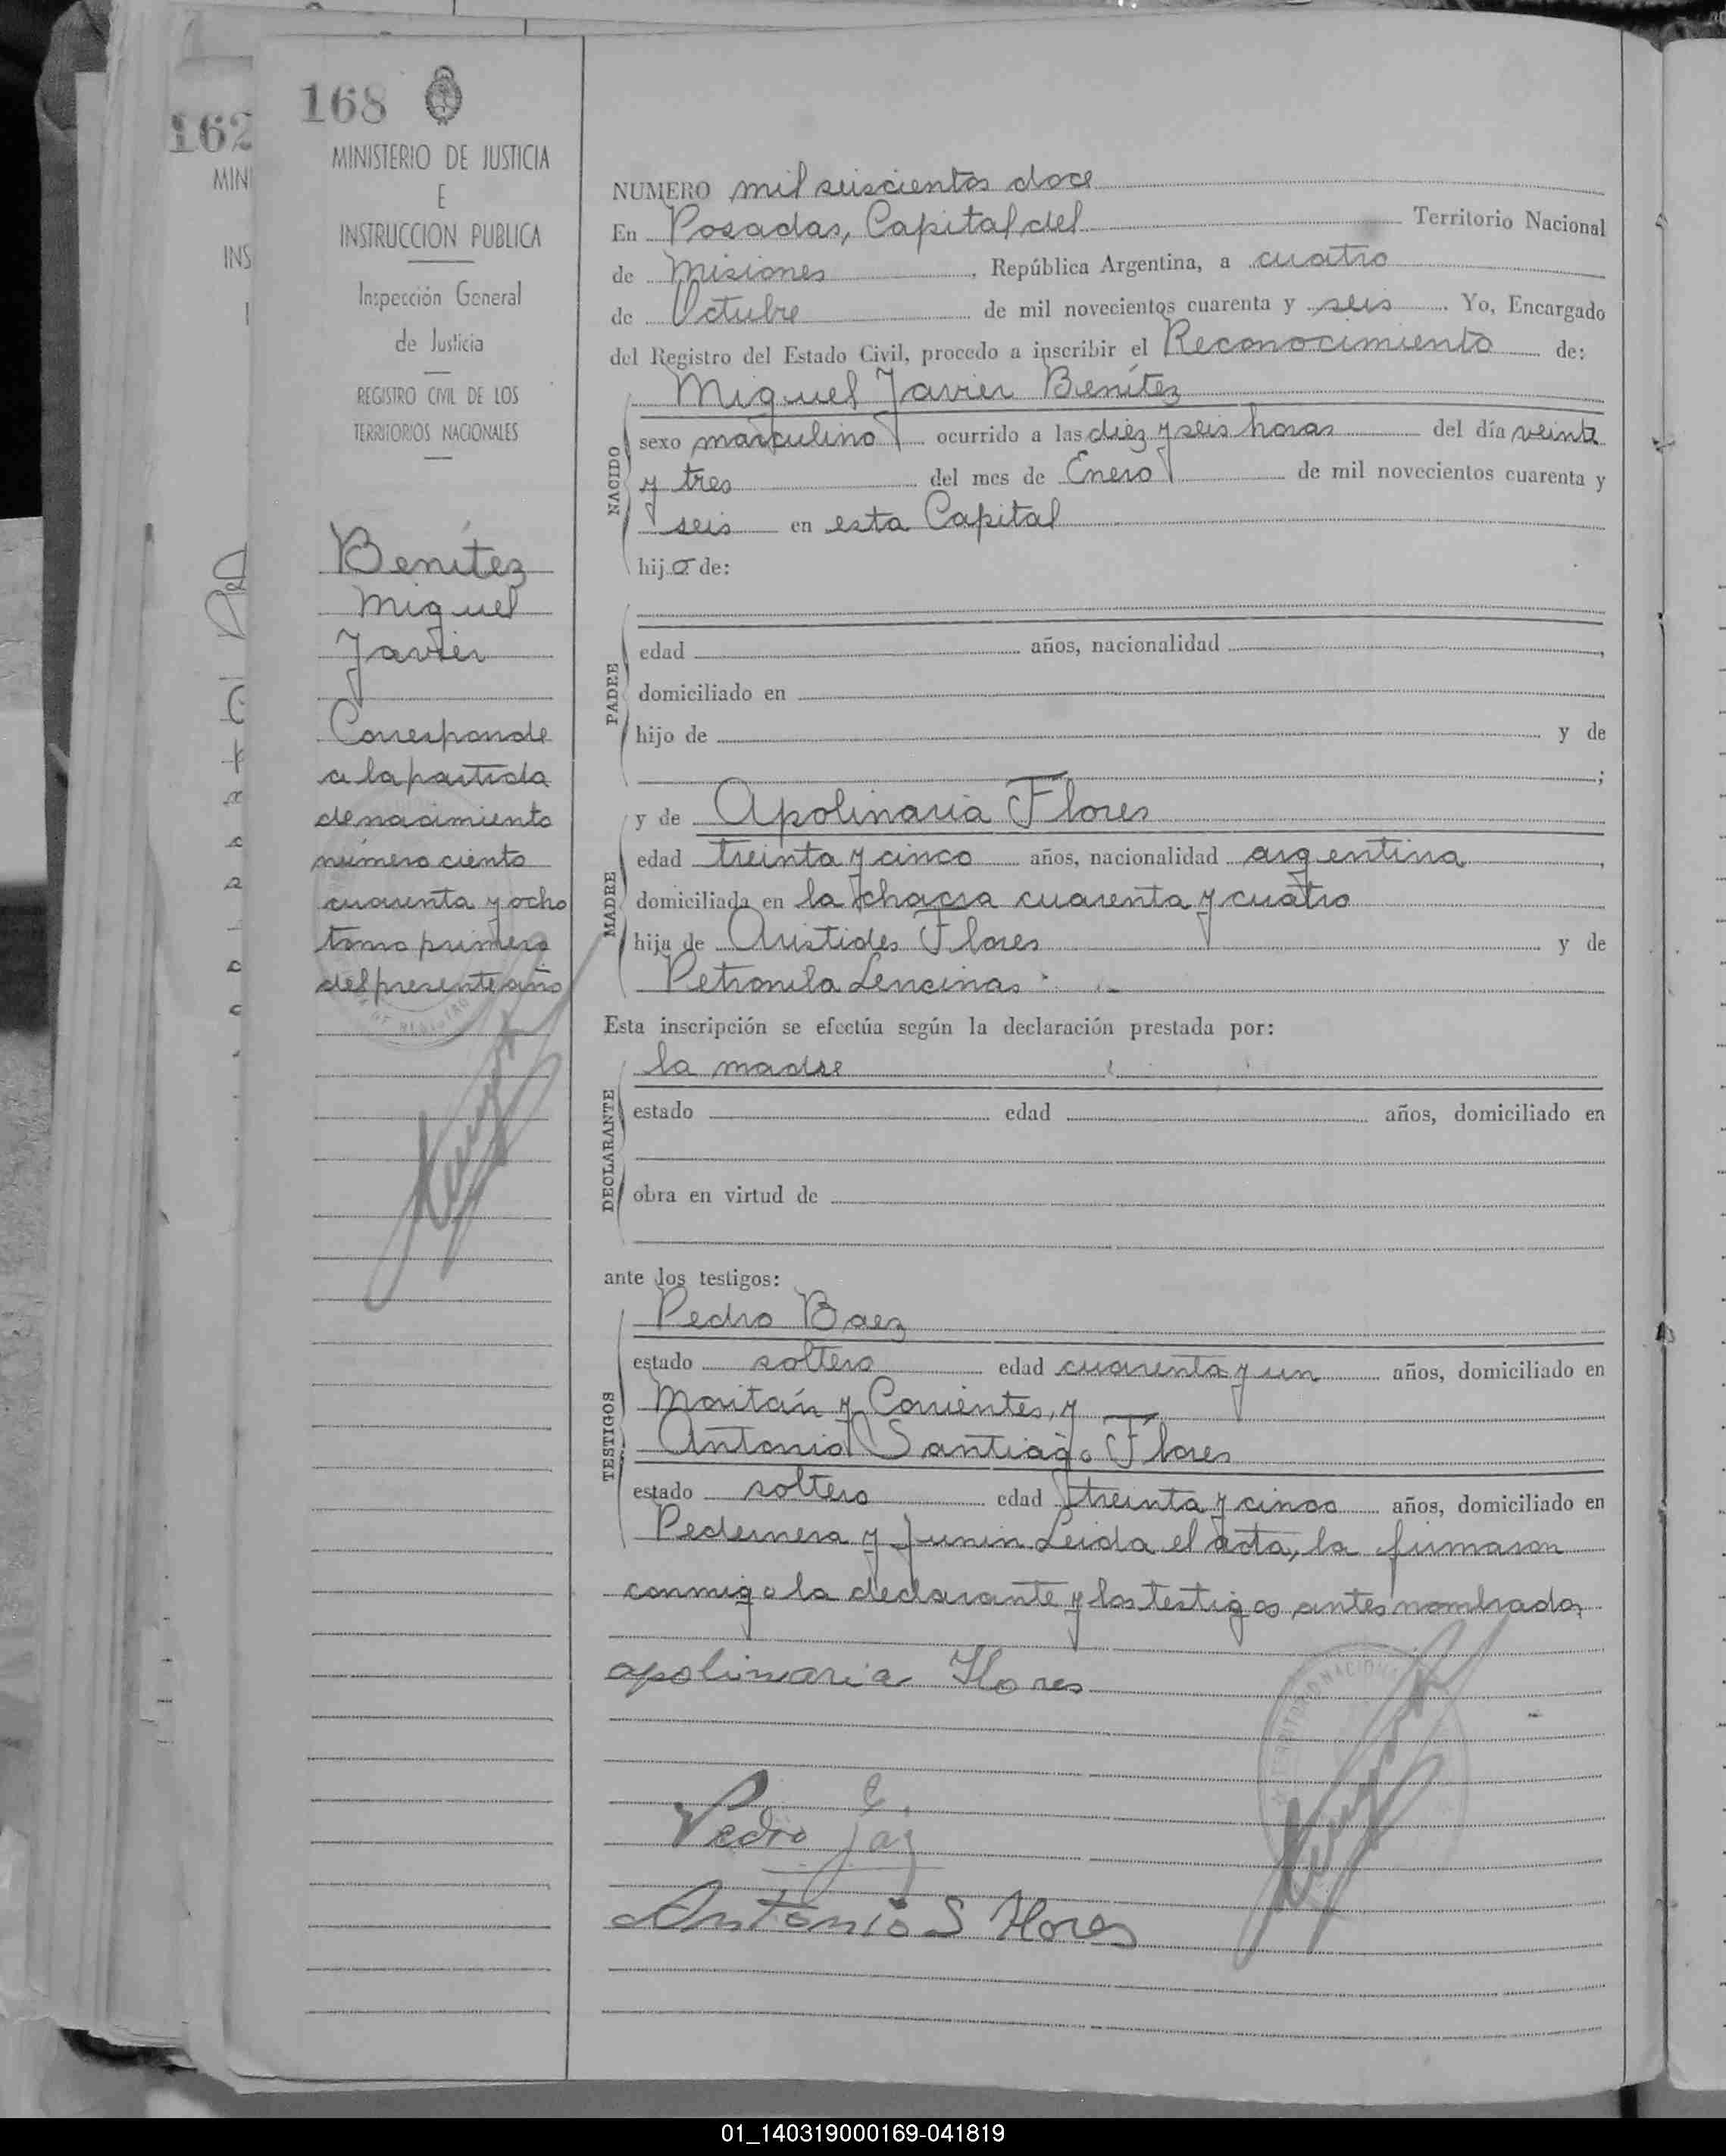 168
162
MINISTERIO DE JUSTICIA
E
INSTRUCCION PUBLICA
Inspección General
de Justicia
REGISTRO CIVIL DE LOS
TERRITORIOS NACIONALES
MIN
INS
Benítez
Miguel
Javier
Corresponde
a la partida
de nacimiento
número ciento
cuarenta y ocho
tomo primero
del presente año
NUMERO mil seiscientos doce
En Posadas, Capital del Territorio Nacional
de Misiones, República Argentina, a cuatro
de Octubre de mil novecientos cuarenta y seis. Yo, Encargado
del Registro del Estado Civil, procedo a inscribir el Reconocimiento de:
Miguel Javier Benítez
NACIDO
sexo masculino ocurrido a las diez y seis horas del día veinte
y tres del mes de Enero de mil novecientos cuarenta y
seis en esta Capital
hijo de:
PADRE
edad años, nacionalidad ,
domiciliado en
hijo de y de
;
MADRE
y de Apolinaria Flores
edad treinta y cinco años, nacionalidad argentina,
domiciliada en la chacra cuarenta y cuatro
hija de Aristides Flores y de
Petronila Lencinas
Esta inscripción se efectúa según la declaración prestada por:
DECLARANTE
la madre
estado edad años, domiciliado en
obra en virtud de
ante los testigos:
TESTIGOS
Pedro Baez
estado soltero edad cuarenta y un años, domiciliado en
Maitán y Corrientes, y
Antonio Santiago Flores
estado soltero edad treinta y cinco años, domiciliado en
Pedernera y Junin Leida el acta, la firmaron
conmigo la declarante y los testigos antes nombrados
apolinaria Flores
TERRITORIO NACIONAL
Pedro
Antonio S Flores
01_140319000169-041819